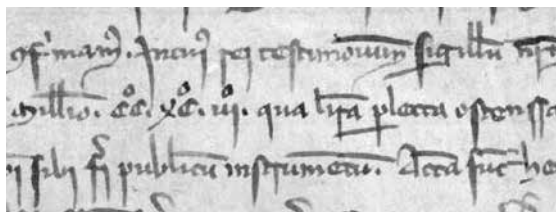 ꝯfirmamꝰ. In cuiꝰ rei testimoniūm sigillū nr̄
Millio. CͦC. XͦC. iiiͦi. qua lr̄a plecta ostenssa
sibi fi̅ publicū instrumētū. Acta fūt he